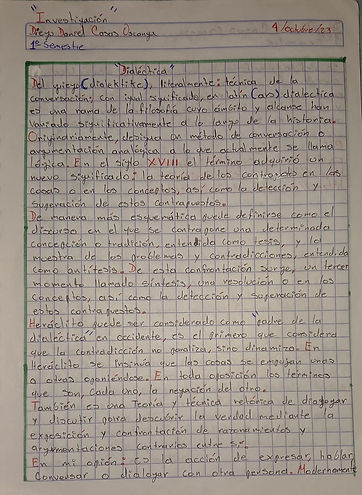 "Investigación"
Diego Daniel Casas Oscanga
4/octubre/23
1º Semestre
"Dialéctica"
Del griego (dialektité), literalmente: técnica de la
conversación; con igual significado, en latín (ars) dialectica
es una rama de la filosofía cuyo ámbito y alcance han
variado significativamente a lo largo de la historia.
Originariamente, designa un método de conversación o
argumentación analógica a lo que actualmente se llama
lógica. En el siglo XVIII el término adquirió un
nuevo significado: la teoría de los contrapuestos en las
cosas o en los conceptos, así como la detección y
superación de estos contrapuestos.
De manera más esquemática puede definirse como el
discurso en el que se contrapone una determinada
concepción o tradición, entendida como tesis, y la
muestra de los problemas y contradicciones, entendida
como antítesis. De esta confrontación surge, un tercer
momento llamado síntesis, una resolución o en los
conceptos, así como la detección y superación de
estos contrapuestos.
Heráclito puede ser considerado como "padre de la
dialéctica" en occidente, es el primero que considera
que la contradicción no paraliza, sino dinamiza. En
Heráclito se insinúa que las cosas se empujan unas
a otras oponiéndose. En toda oposición los términos
que son, cada uno, la negación del otro.
También es una teoría y técnica retórica de dialogar
y discutir para descubrir la verdad mediante la
exposición y confrontación de razonamientos y
argumentaciones contrarios entre sí.
En mi opinión: es la acción de expresar, hablar,
conversar o dialogar con otra persona. Modernamente